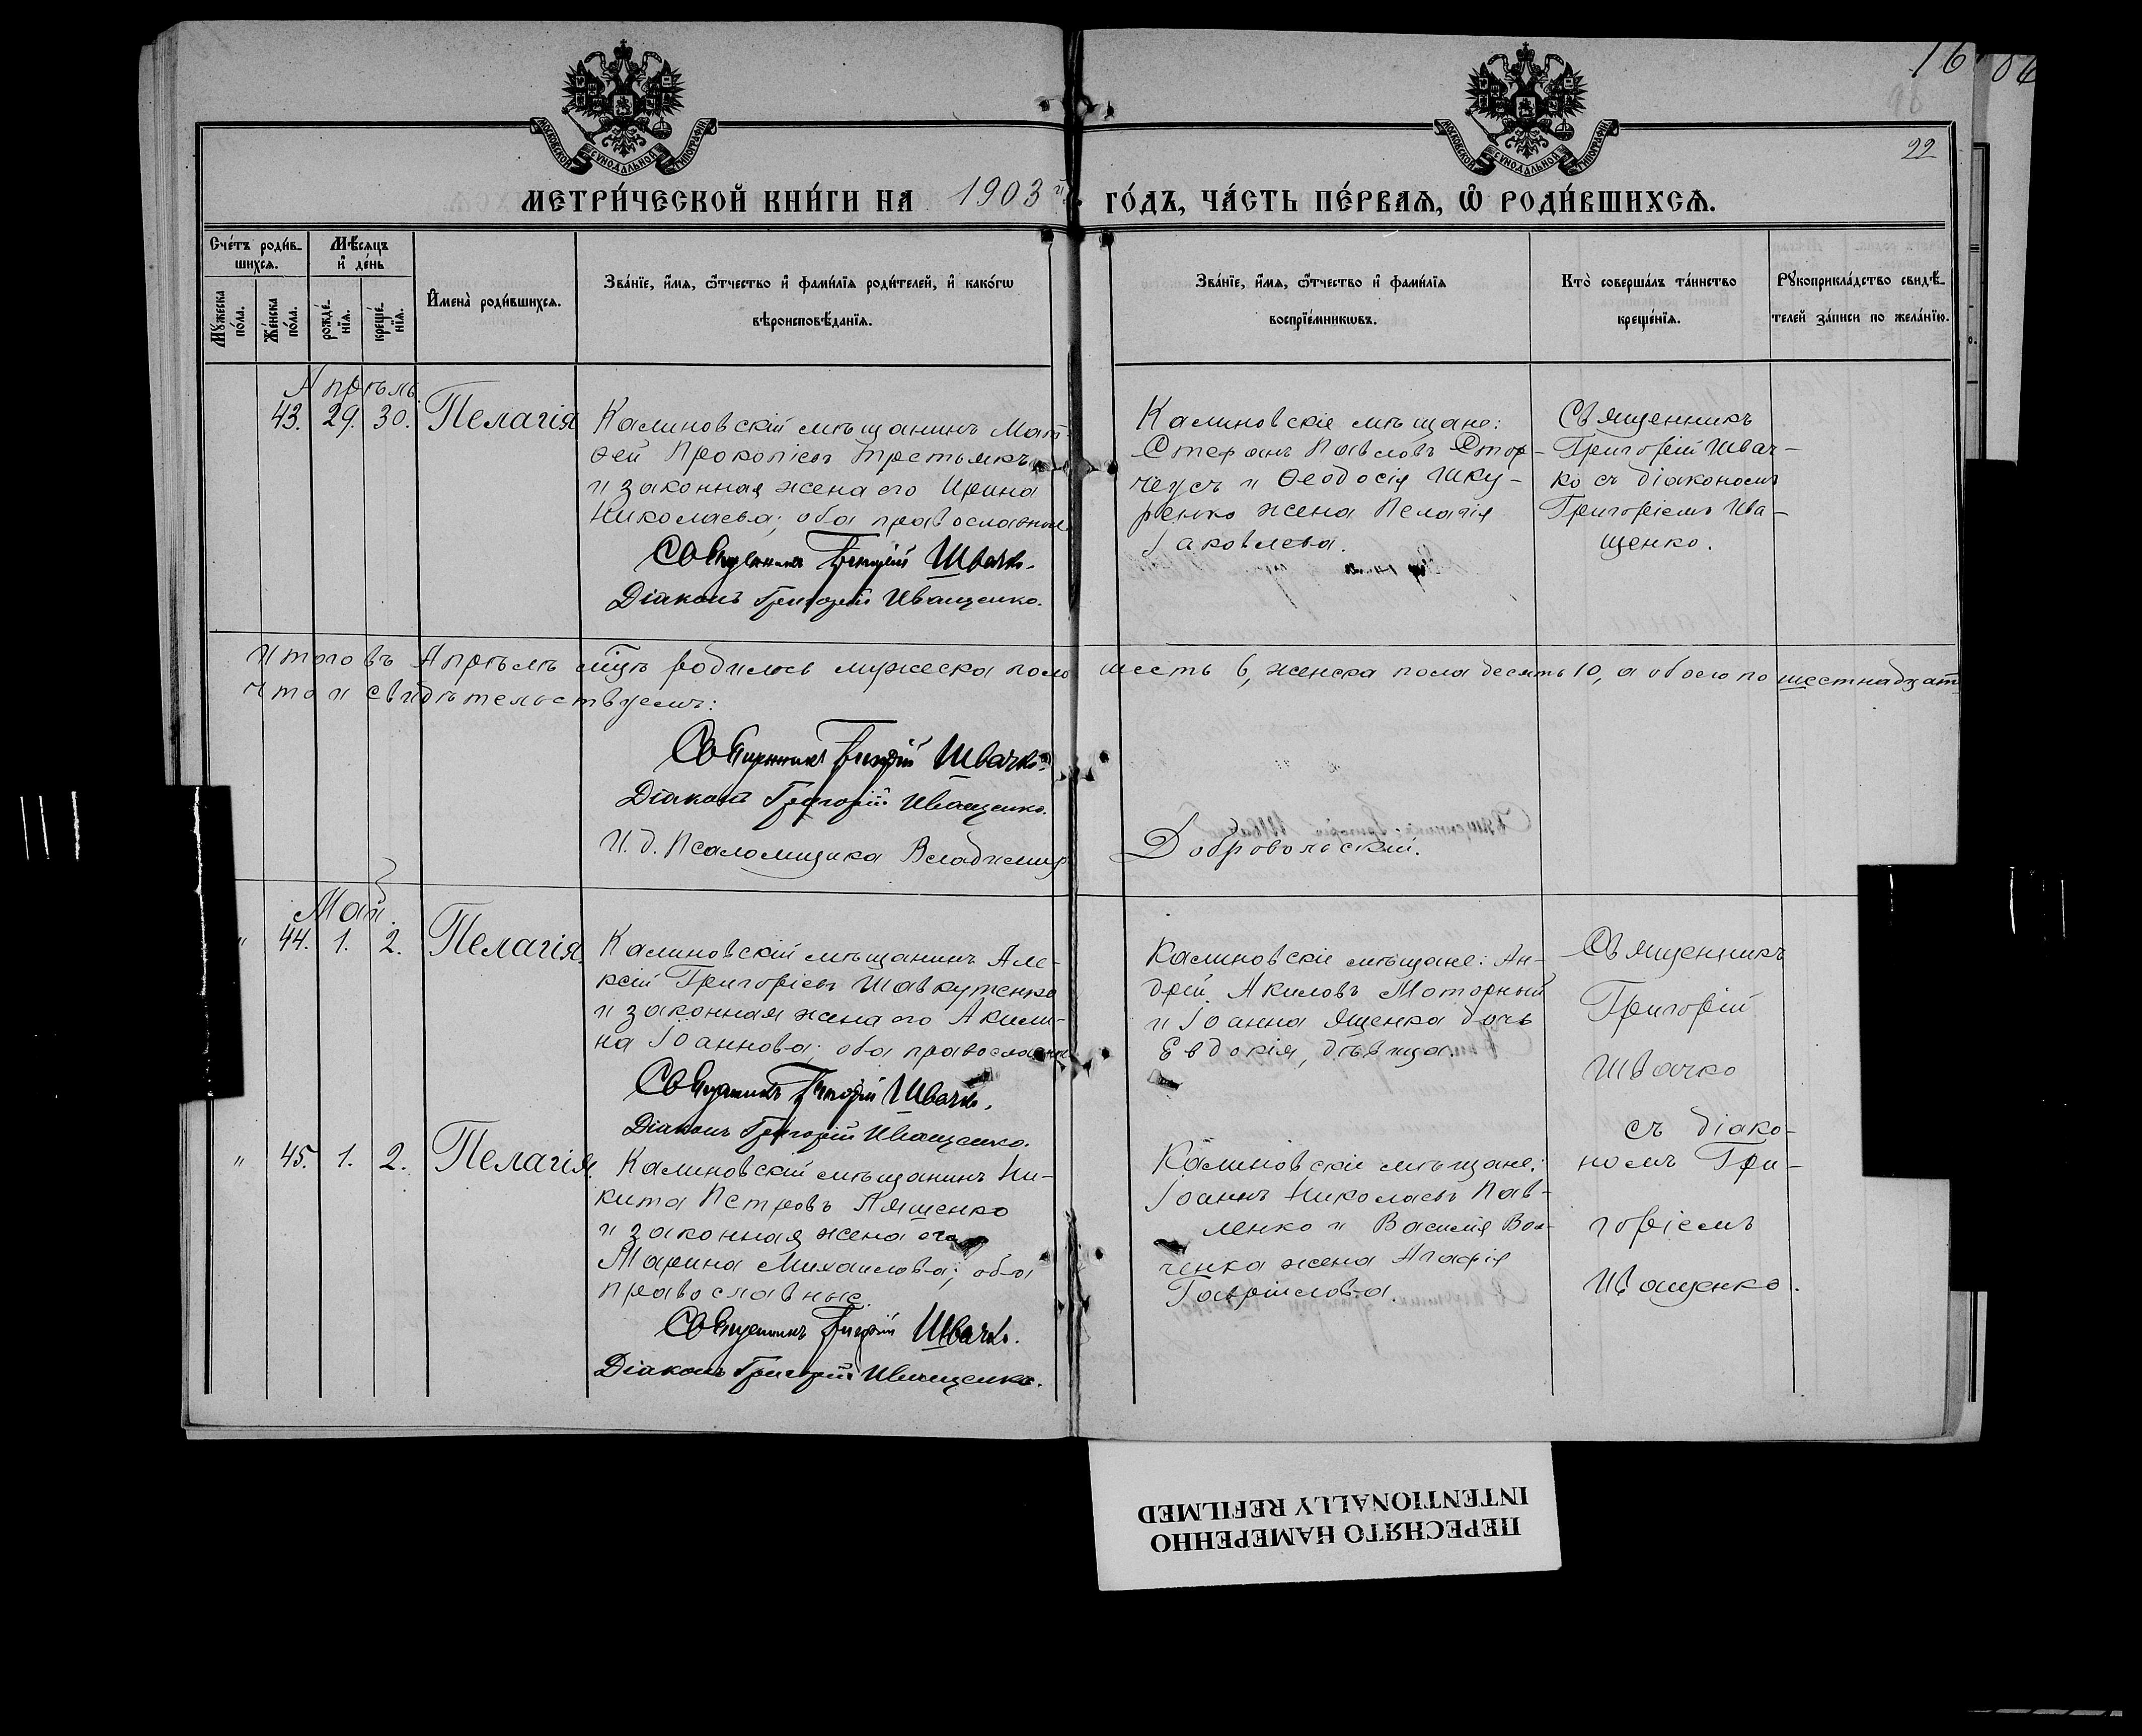 16 06
98
22
МОСКОВСКОЙ СѴНОДАЛЬНОЙ ТИПОГРАФІИ
МОСКОВСКОЙ СѴНОДАЛЬНОЙ ТИПОГРАФІИ
МЕТРИ́ЧЕСКОЙ КНИ́ГИ НА 1903 й ГО́ДЪ, ЧА́СТЬ ПЕ́РВАѦ, Ѡ҆ РОДИ́ВШИХСѦ.
Счéтъ роди́в-
шихсѧ.
Мѣ́сяцъ
и҆ дéнь
Мꙋ́жеска
пóла.
Жéнска
пóла.
рождé-
нїѧ.
крещé-
нїѧ.
И҆менà роди́вшихсѧ.
Звáнїе, и҆́мѧ, ѻ҆́тчество и҆ фами́лїѧ роди́телей, и҆ какóгѡ
вѣроисповѣ́данїѧ.
Звáнїе, и҆́мѧ, ѻ҆́тчество и҆ фами́лїѧ
воспрїéмникѡвъ.
Ктò совершáлъ тáинство
крещéнїѧ.
Рꙋкоприклáдство свидѣ́-
телей зáписи по желáнїю.
Апрѣль.
43. 29. 30. Пелагія
Калиновскій мѣщанинъ Мат-
ѳей Прокопіевъ Третьякъ
и законная жена его Ирина
Николаева; оба православные
Священникъ Григорій Швачко.
Діаконъ Григорій Иващенко.
Калиновскіе мѣщане:
Стефанъ Павловъ Стор-
чеусъ и Ѳеодосія Шку-
ренко жена Пелагія
Іаковлева.
Священникъ
Григорій Швач-
ко съ діакономъ
Григоріемъ Ива-
щенко.
Итого въ Апрѣлѣ м͠цѣ родилось мужеска пола шесть 6, женска пола десять 10, а обоего по шестнадцать
что и свидѣтельствуемъ:
Священникъ Григорій Швачко.
Діаконъ Григорій Иващенко.
И. д. Псаломщика Владимиръ Добровольскій.
Май.
" 44. 1. 2. Пелагія.
Калиновскій мѣщанинъ Але-
ксій Григоріевъ Шавкутенко
и законная жена его Акили-
на Іоаннова; оба православные
Священникъ Григорій Швачко.
Діаконъ Григорій Иващенко.
Калиновскіе мѣщане: Ан-
дрей Акиловъ Моторный
и Іоанна Ященка дочь
Евдокія, дѣвица.
Священникъ
Григорій
Швачко
съ діако-
номъ Гри-
горіемъ
Иващенко.
" 45. 1. 2. Пелагія.
Калиновскій мѣщанинъ Ни-
кита Петровъ Ляшенко
и законная жена его
Марина Михаилова; оба
православные.
Священникъ Григорій Швачко.
Діаконъ Григорій Иващенко.
Калиновскіе мѣщане:
Іоаннъ Николаевъ Пав-
ленко и Василія
ченка жена Агафія
Гавріилова.
ПЕРЕСНЯТО НАМЕРЕННО
INTENTIONALLY REFILMED